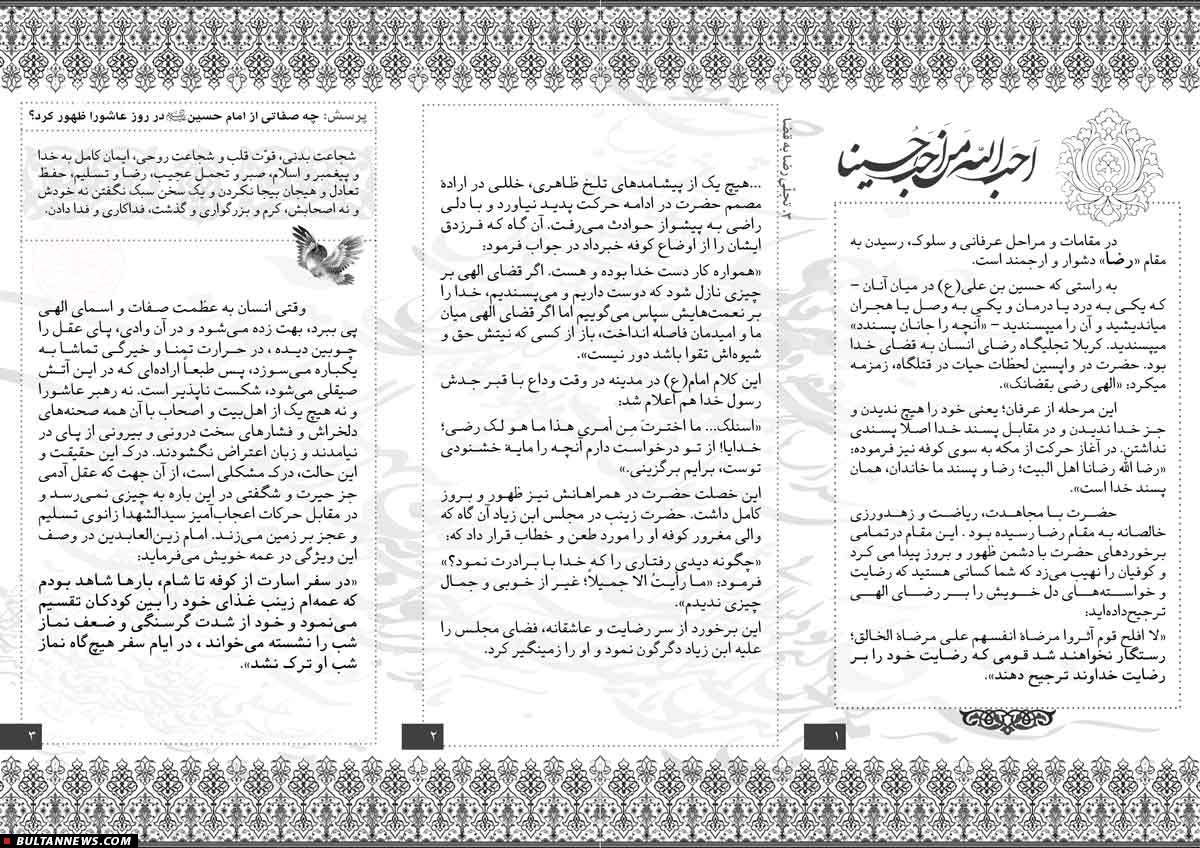 احب الله من احب حسینا
در مقامات و مراحل عرفانی و سلوک، رسیدن به
مقام «رضا» دشوار و ارجمند است.
به راستی که حسین بن علی(ع) در میان آنان –
که یکی به درد یا درمان و یکی به وصل یا هجران
میاندیشید و آن را میپسندید – «آنچه را جانان پسندد»
میپسندید. کربلا تجلیگاه رضای انسان به قضای خدا
بود. حضرت در واپسین لحظات حیات در قتلگاه، زمزمه
میکرد: «الهی رضی بقضائک».
این مرحله از عرفان؛ یعنی خود را هیچ ندیدن و
جز خدا ندیدن و در مقابل پسند خدا اصلا پسندی
نداشتن. در آغاز حرکت از مکه به سوی کوفه نیز فرموده:
«رضا الله رضانا اهل البیت؛ رضا و پسند ما خاندان، همان
پسند خدا است».
حضرت با مجاهدت، ریاضت و زهدورزی
خالصانه به مقام رضا رسیده بود . این مقام درتمامی
برخوردهای حضرت با دشمن ظهور و بروز پیدا می کرد
و کوفیان را نهیب می‌زد که شما کسانی هستید که رضایت
و خواسته‌های دل خویش را بر رضای الهی
ترجیح‌داده‌اید:
«لا افلح قوم آثروا مرضاة انفسهم علی مرضاة الخالق؛
رستگار نخواهند شد قومی که رضایت خود را بر
رضایت خداوند ترجیح دهند».
۱
۳. تجلّی رضا به قضا
...هیچ یک از پیشامدهای تلخ ظاهری، خللی در ارادهٔ
مصمم حضرت در ادامه حرکت پدید نیاورد و با دلی
راضی به پیشواز حوادث می‌رفت. آن گاه که فرزدق
ایشان را از اوضاع کوفه خبرداد در جواب فرمود:
«همواره کار دست خدا بوده و هست. اگر قضای الهی بر
چیزی نازل شود که دوست داریم و می‌پسندیم، خدا را
بر نعمت‌هایش سپاس می‌گوییم اما اگر قضای الهی میان
ما و امیدمان فاصله انداخت، باز از کسی که نیتش حق و
شیوه‌اش تقوا باشد دور نیست».
این کلام امام(ع) در مدینه در وقت وداع با قبر جدش
رسول خدا هم اعلام شد:
«اسئلک... ما اخترتَ مِن اَمری هذا ما هو لک رضی؛
خدایا! از تو درخواست دارم آنچه را مایهٔ خشنودی
توست، برایم برگزینی.»
این خصلت حضرت در همراهانش نیز ظهور و بروز
کامل داشت. حضرت زینب در مجلس ابن زیاد آن گاه که
والی مغرور کوفه او را مورد طعن و خطاب قرار داد که:
«چگونه دیدی رفتاری را که خدا با برادرت نمود؟»
فرمود: «ما رأیتُ الا جمیلاً؛ غیر از خوبی و جمال
چیزی ندیدم».
این برخورد از سرِ رضایت و عاشقانه، فضای مجلس را
علیه ابن زیاد دگرگون نمود و او را زمینگیر کرد.
۲
پرسش: چه صفاتی از امام حسین در روز عاشورا ظهور کرد؟
شجاعت بدنی، قوّت قلب و شجاعت روحی، ایمان کامل به خدا
و پیغمبر و اسلام، صبر و تحمل عجیب، رضا و تسلیم، حفظ
تعادل و هیجان بیجا نکردن و یک سخن سبک نگفتن نه خودش
و نه اصحابش، کرم و بزرگواری و گذشت، فداکاری و فدا دادن.
وقتی انسان به عظمت صفات و اسمای الهی
پی ببرد، بهت زده می‌شود و در آن وادی، پای عقل را
چوبین دیده ، در حرارت تمنا و خیرگی تماشا به
یکباره می‌سوزد، پس طبعاً اراده‌ای که در این آتش
صیقلی می‌شود، شکست ناپذیر است. نه رهبر عاشورا
و نه هیچ یک از اهل‌بیت و اصحاب با آن همه صحنه‌های
دلخراش و فشارهای سخت درونی و بیرونی از پای در
نیامدند و زبان اعتراض نگشودند. درک این حقیقت و
این حالت، درک مشکلی است، از آن جهت که عقل آدمی
جز حیرت و شگفتی در این باره به چیزی نمی‌رسد و
در مقابل حرکات اعجاب‌آمیز سیدالشهدا زانوی تسلیم
و عجز بر زمین می‌زند. امام زین‌العابدین در وصف
این ویژگی در عمه خویش می‌فرماید:
«در سفر اسارت از کوفه تا شام، بارها شاهد بودم
که عمه‌ام زینب غذای خود را بین کودکان تقسیم
می‌نمود و خود از شدت گرسنگی و ضعف نماز
شب را نشسته می‌خواند ، در ایام سفر هیچ‌گاه نماز
شب او ترک نشد».
۳
BULTANNEWS.COM